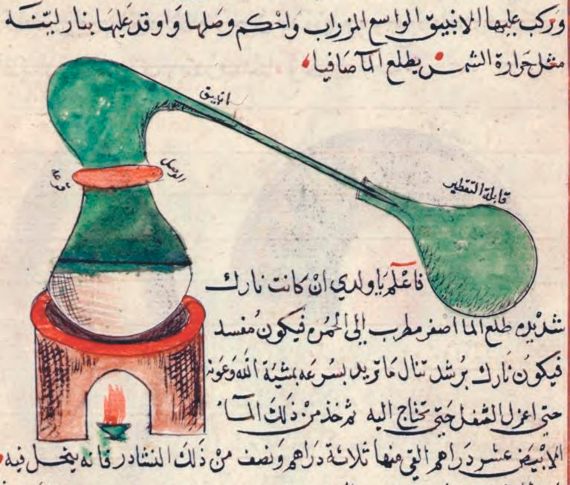 وركب عليها الانبيق الواسع المزراب واحكم وصلها واوقد عليها بنار لينة
مثل حرارة الشمس يطلع الماء صافيا
انبيق
الوصل
قابلة التقطير
فاعلم يا ولدي ان كانت نارك
شديده طلع الما اصفر مطرب الى الحمره فيكون مفسد
فيكون نارك برشد تنال ما تريد بسرعه بمشية الله وعونه
حتى اعزل الثفل حتى تحتاج اليه ثم خذ من ذلك الماء
الابيض عشر دراهم القي منها ثلاثة دراهم ونصف من ذلك النشادر فانه ينحل فيه